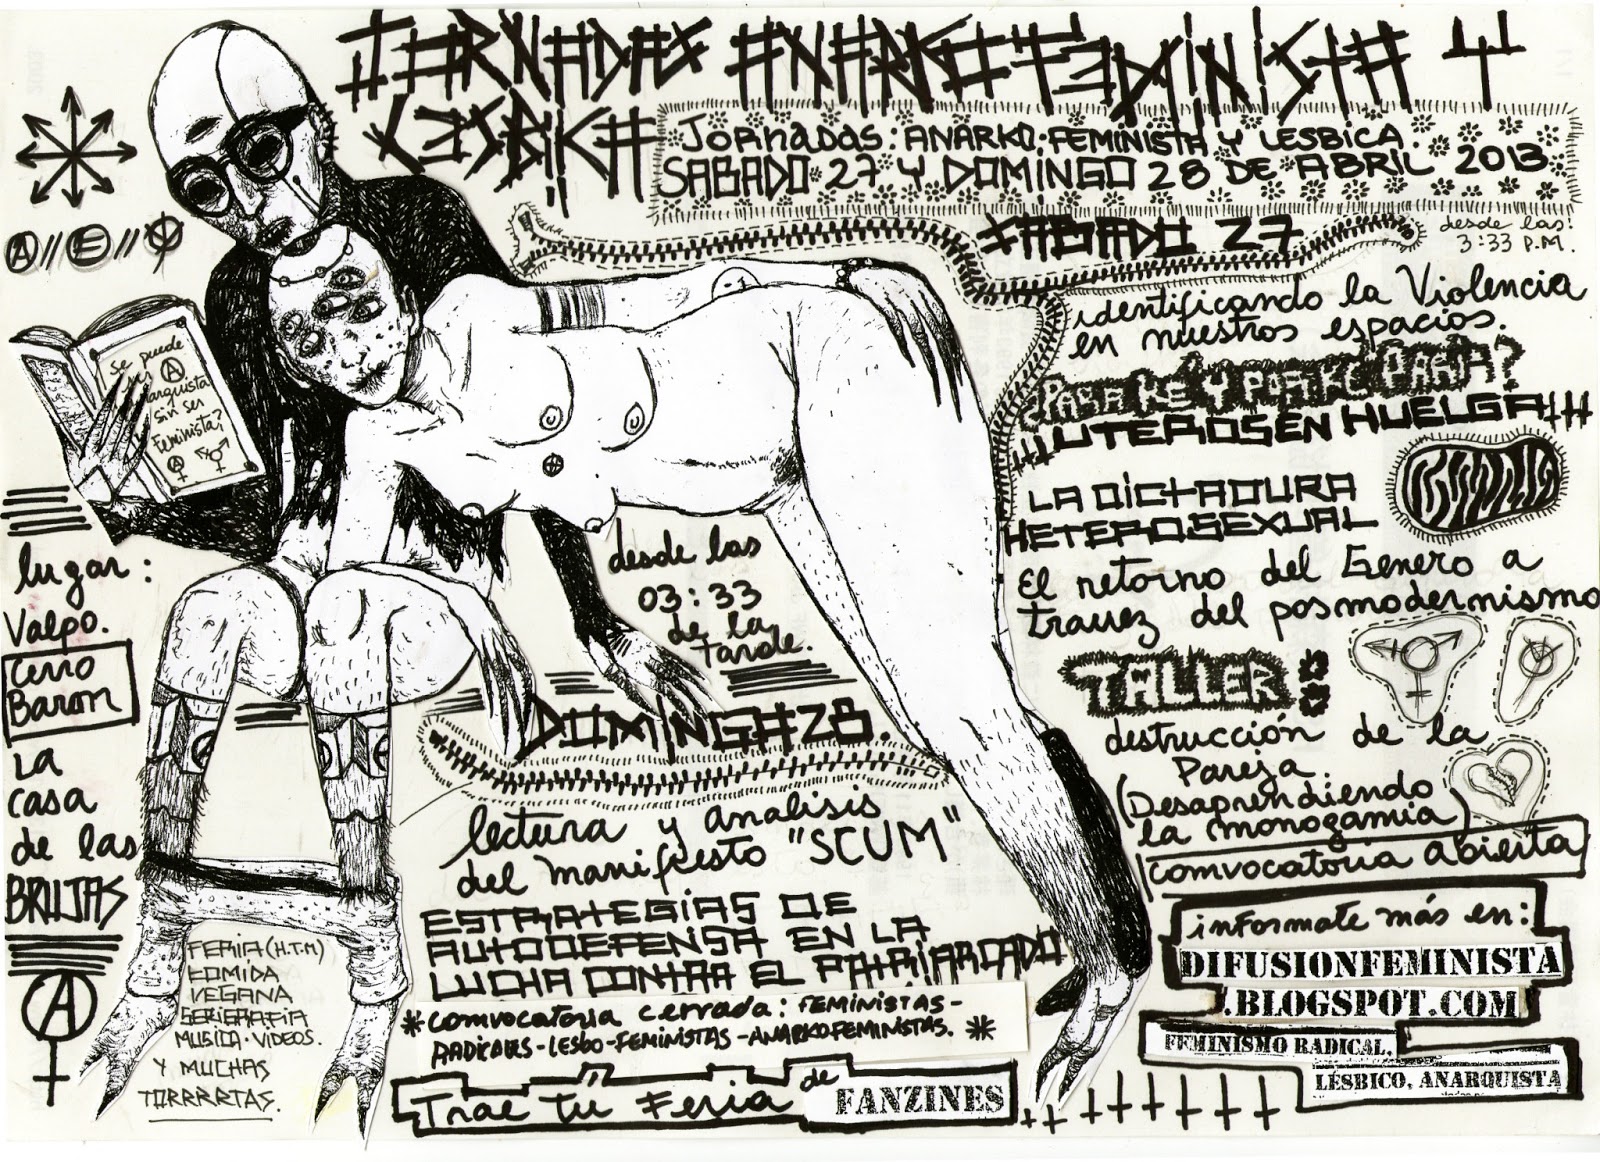 JORNADAS ANARKOFEMINISTA Y
LESBICA
Jornadas: ANARKO: FEMINISTA Y LESBICA.
SABADO 27 Y DOMINGO 28 DE ABRIL 2013
A // E //
XABADO 27
desde las:
3:33 P.M.
identificando la Violencia
en nuestros espacios.
¿PARA KE Y POR KE PARIR?
¡¡¡UTEROS EN HUELGA!!!
LA DICTADURA
HETEROSEXUAL
El retorno del Genero a
travez del posmodernismo
TALLER:
destrucción de la
Pareja.
(Desaprendiendo
la monogamia)
convocatoria abierta
informate más en:
DIFUSIONFEMINISTA
.BLOGSPOT.COM
FEMINISMO RADICAL,
LÉSBICO, ANARQUISTA
se puede
ser
anarquista
sin ser
Feminista?
lugar:
Valpo.
Cerro
Baron
La
casa
de las
BRUJAS
FERIA (H.T.M)
KOMIDA
VEGANA
SERIGRAFIA
MUSICA · VIDEOS.
Y MUCHAS
TORRRRTAS.
desde las
03:33
de la
tarde.
DOMINGO 28.
lectura y analisis
del manifiesto "SCUM"
ESTRATEGIAS DE
AUTODEFENSA EN LA
LUCHA CONTRA EL PATRIARCADO
* convocatoria cerrada: FEMINISTAS-
RADIKALES-LESBO-FEMINISTAS-ANARKOFEMINISTAS. *
Trae Tu Feria de FANZINES